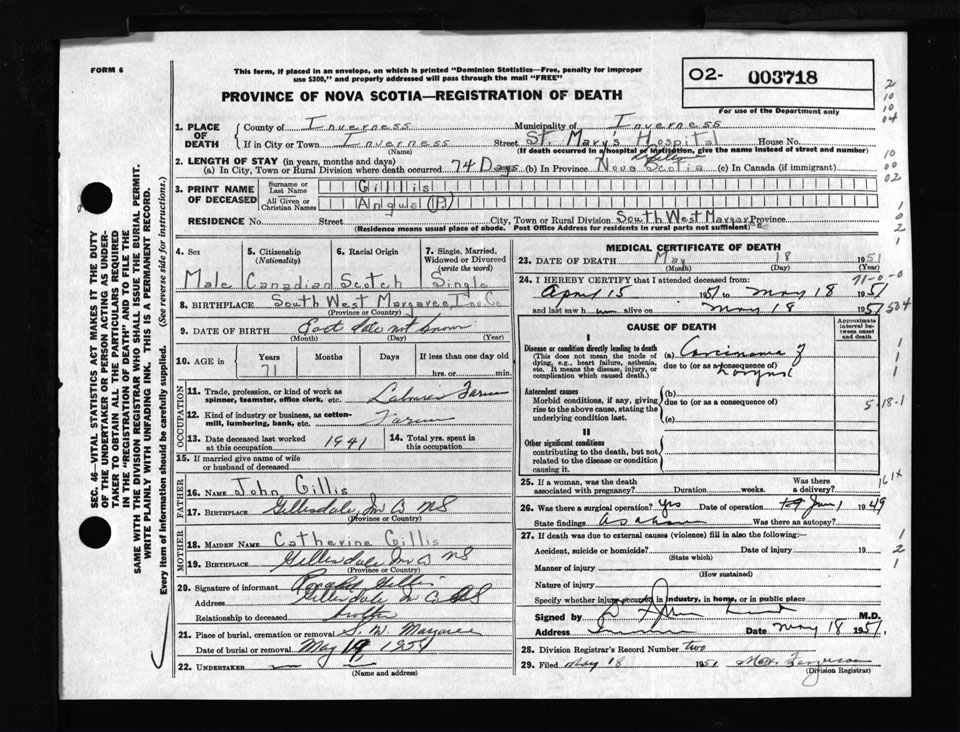 FORM 6
This form, if placed in an envelope, on which is printed "Dominion Statistics—Free, penalty for improper
use $300," and properly addressed will pass through the mail "FREE"
PROVINCE OF NOVA SCOTIA—REGISTRATION OF DEATH
02- 003718
For use of the Department only
SEC. 46—VITAL STATISTICS ACT MAKES IT THE DUTY
OF THE UNDERTAKER OR PERSON ACTING AS UNDER-
TAKER TO OBTAIN ALL THE PARTICULARS REQUIRED
IN THE "REGISTRATION OF DEATH" AND TO FILE THE
SAME WITH THE DIVISION REGISTRAR WHO SHALL ISSUE THE BURIAL PERMIT.
WRITE PLAINLY WITH UNFADING INK. THIS IS A PERMANENT RECORD.
Every item of Information should be carefully supplied. (See reverse side for instructions.)
1. PLACE OF DEATH
County of Inverness Municipality of Inverness
If in City or Town Inverness Street St. Mary's Hospital House No.
(Name) (If death occurred in a hospital or institution, give the name instead of street and number)
2. LENGTH OF STAY (in years, months and days)
(a) In City, Town or Rural Division where death occurred 74 Days (b) In Province Nova Scotia (c) In Canada (if immigrant)
3. PRINT NAME OF DECEASED
Surname or Last Name Gillis
All Given or Christian Names Angus (P)
RESIDENCE No. Street City, Town or Rural Division South West Margaree Province
(Residence means usual place of abode. Post Office Address for residents in rural parts not sufficient)
4. Sex 5. Citizenship (Nationality) 6. Racial Origin 7. Single, Married, Widowed or Divorced (write the word)
Male Canadian Scotch Single
8. BIRTHPLACE South West Margaree, Inv Co
(Province or Country)
9. DATE OF BIRTH Exact date not known
(Month) (Day) (Year)
10. AGE in Years Months Days If less than one day old
71 hrs. or min.
OCCUPATION
11. Trade, profession, or kind of work as
spinner, teamster, office clerk, etc. Laborer Farmer
12. Kind of industry or business, as cotton-
mill, lumbering, bank, etc. Farm
13. Date deceased last worked
at this occupation 1941
14. Total yrs. spent in
this occupation
15. If married give name of wife
or husband of deceased
FATHER
16. NAME John Gillis
17. BIRTHPLACE Gillisdale, In Co NS
(Province or Country)
MOTHER
18. MAIDEN NAME Catherine Gillis
19. BIRTHPLACE Gillisdale In Co NS
(Province or Country)
20. Signature of informant Gillis
Address Gillisdale In Co NS
Relationship to deceased brother
21. Place of burial, cremation or removal S. W. Margaree
Date of burial or removal May 19 1951
22. UNDERTAKER
(Name and address)
MEDICAL CERTIFICATE OF DEATH
23. DATE OF DEATH May 18 1951
(Month) (Day) (Year)
24. I HEREBY CERTIFY that I attended deceased from:
April 15 1951 to May 18 1951
and last saw h im alive on May 18 1951
CAUSE OF DEATH
Approximate interval between onset and death
I
Disease or condition directly leading to death
(This does not mean the mode of
dying, e.g., heart failure, asthenia,
etc. It means the disease, injury, or
complication which caused death.)
(a) Carcinoma of
due to (or as a consequence of)
Larynx
Antecedent causes
Morbid conditions, if any, giving
rise to the above cause, stating the
underlying condition last.
(b)
due to (or as a consequence of)
(c)
II
Other significant conditions
contributing to the death, but not
related to the disease or condition
causing it.
25. If a woman, was the death
associated with pregnancy? Duration weeks. Was there a delivery?
26. Was there a surgical operation? yes Date of operation 1949
State findings as above Was there an autopsy?
27. If death was due to external causes (violence) fill in also the following:-
Accident, suicide or homicide? Date of injury 19
(State which)
Manner of injury
(How sustained)
Nature of injury
Specify whether injury occurred in industry, in home, or in public place
Signed by M.D.
Address Date May 18 1951
28. Division Registrar's Record Number two
29. Filed May 18 1951 Ferguson
(Division Registrar)
2
10
10
04
10
00
02
1
0
2
1
71-0-0
504
1
1
1
5-18-1
161x
1
2
1